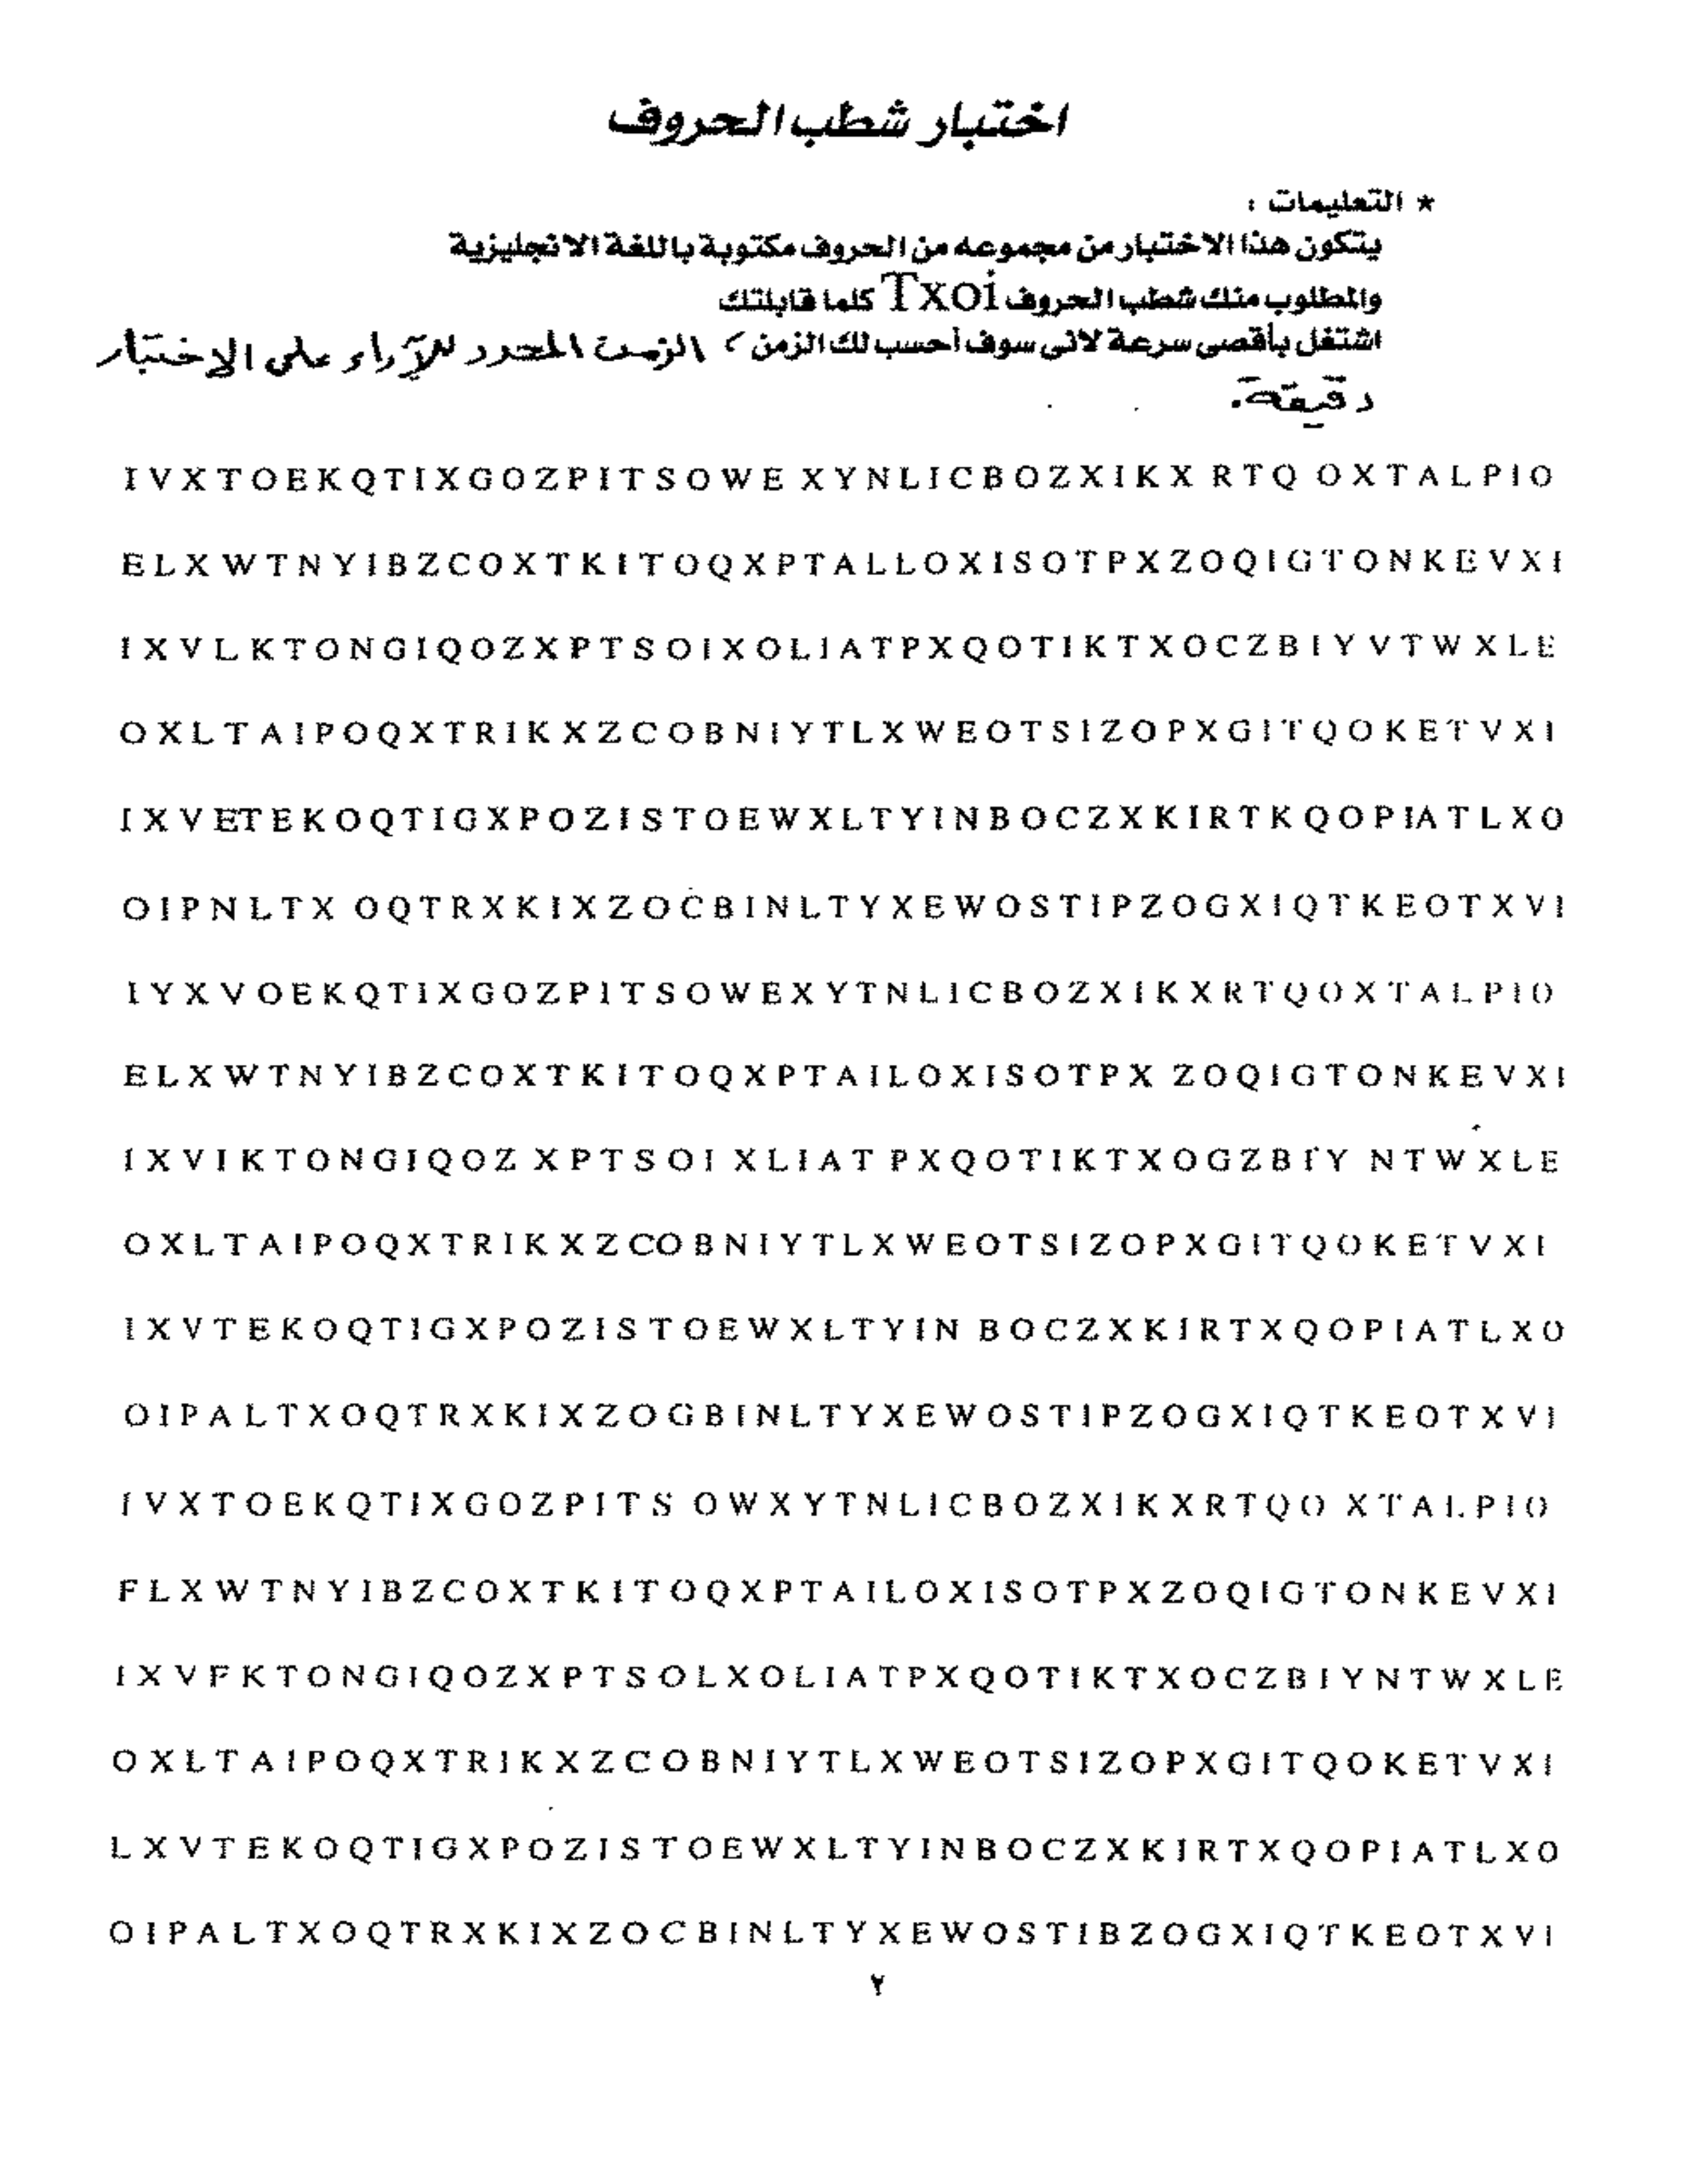 اختبار شطب الحروف
* التعليمات :
يتكون هذا الاختبار من مجموعه من الحروف مكتوبة باللغة الانجليزية
والمطلوب منك شطب الحروف Txoi كلما قابلتك
اشتغل بأقصى سرعة لانى سوف أحسب لك الزمن > الزمن المحدد للآداء على الاختبار
دقيقة.
I V X T O E K Q T I X G O Z P I T S O W E X Y N L I C B O Z X I K X R T Q O X T A L P I O
E L X W T N Y I B Z C O X T K I T O Q X P T A L L O X I S O T P X Z O Q I G T O N K E V X I
I X V L K T O N G I Q O Z X P T S O I X O L I A T P X Q O T I K T X O C Z B I Y V T W X L E
O X L T A I P O Q X T R I K X Z C O B N I Y T L X W E O T S I Z O P X G I T Q O K E T V X I
I X V E T E K O Q T I G X P O Z I S T O E W X L T Y I N B O C Z X K I R T K Q O P I A T L X O
O I P N L T X O Q T R X K I X Z O C B I N L T Y X E W O S T I P Z O G X I Q T K E O T X V I
I Y X V O E K Q T I X G O Z P I T S O W E X Y T N L I C B O Z X I K X R T Q O X T A L P I O
E L X W T N Y I B Z C O X T K I T O Q X P T A I L O X I S O T P X Z O Q I G T O N K E V X I
I X V I K T O N G I Q O Z X P T S O I X L I A T P X Q O T I K T X O G Z B I Y N T W X L E
O X L T A I P O Q X T R I K X Z C O B N I Y T L X W E O T S I Z O P X G I T Q O K E T V X I
I X V T E K O Q T I G X P O Z I S T O E W X L T Y I N B O C Z X K I R T X Q O P I A T L X O
O I P A L T X O Q T R X K I X Z O G B I N L T Y X E W O S T I P Z O G X I Q T K E O T X V I
I V X T O E K Q T I X G O Z P I T S O W X Y T N L I C B O Z X I K X R T Q O X T A L P I O
F L X W T N Y I B Z C O X T K I T O Q X P T A I L O X I S O T P X Z O Q I G T O N K E V X I
I X V F K T O N G I Q O Z X P T S O L X O L I A T P X Q O T I K T X O C Z B I Y N T W X L E
O X L T A I P O Q X T R I K X Z C O B N I Y T L X W E O T S I Z O P X G I T Q O K E T V X I
L X V T E K O Q T I G X P O Z I S T O E W X L T Y I N B O C Z X K I R T X Q O P I A T L X O
O I P A L T X O Q T R X K I X Z O C B I N L T Y X E W O S T I B Z O G X I Q T K E O T X V I
٢